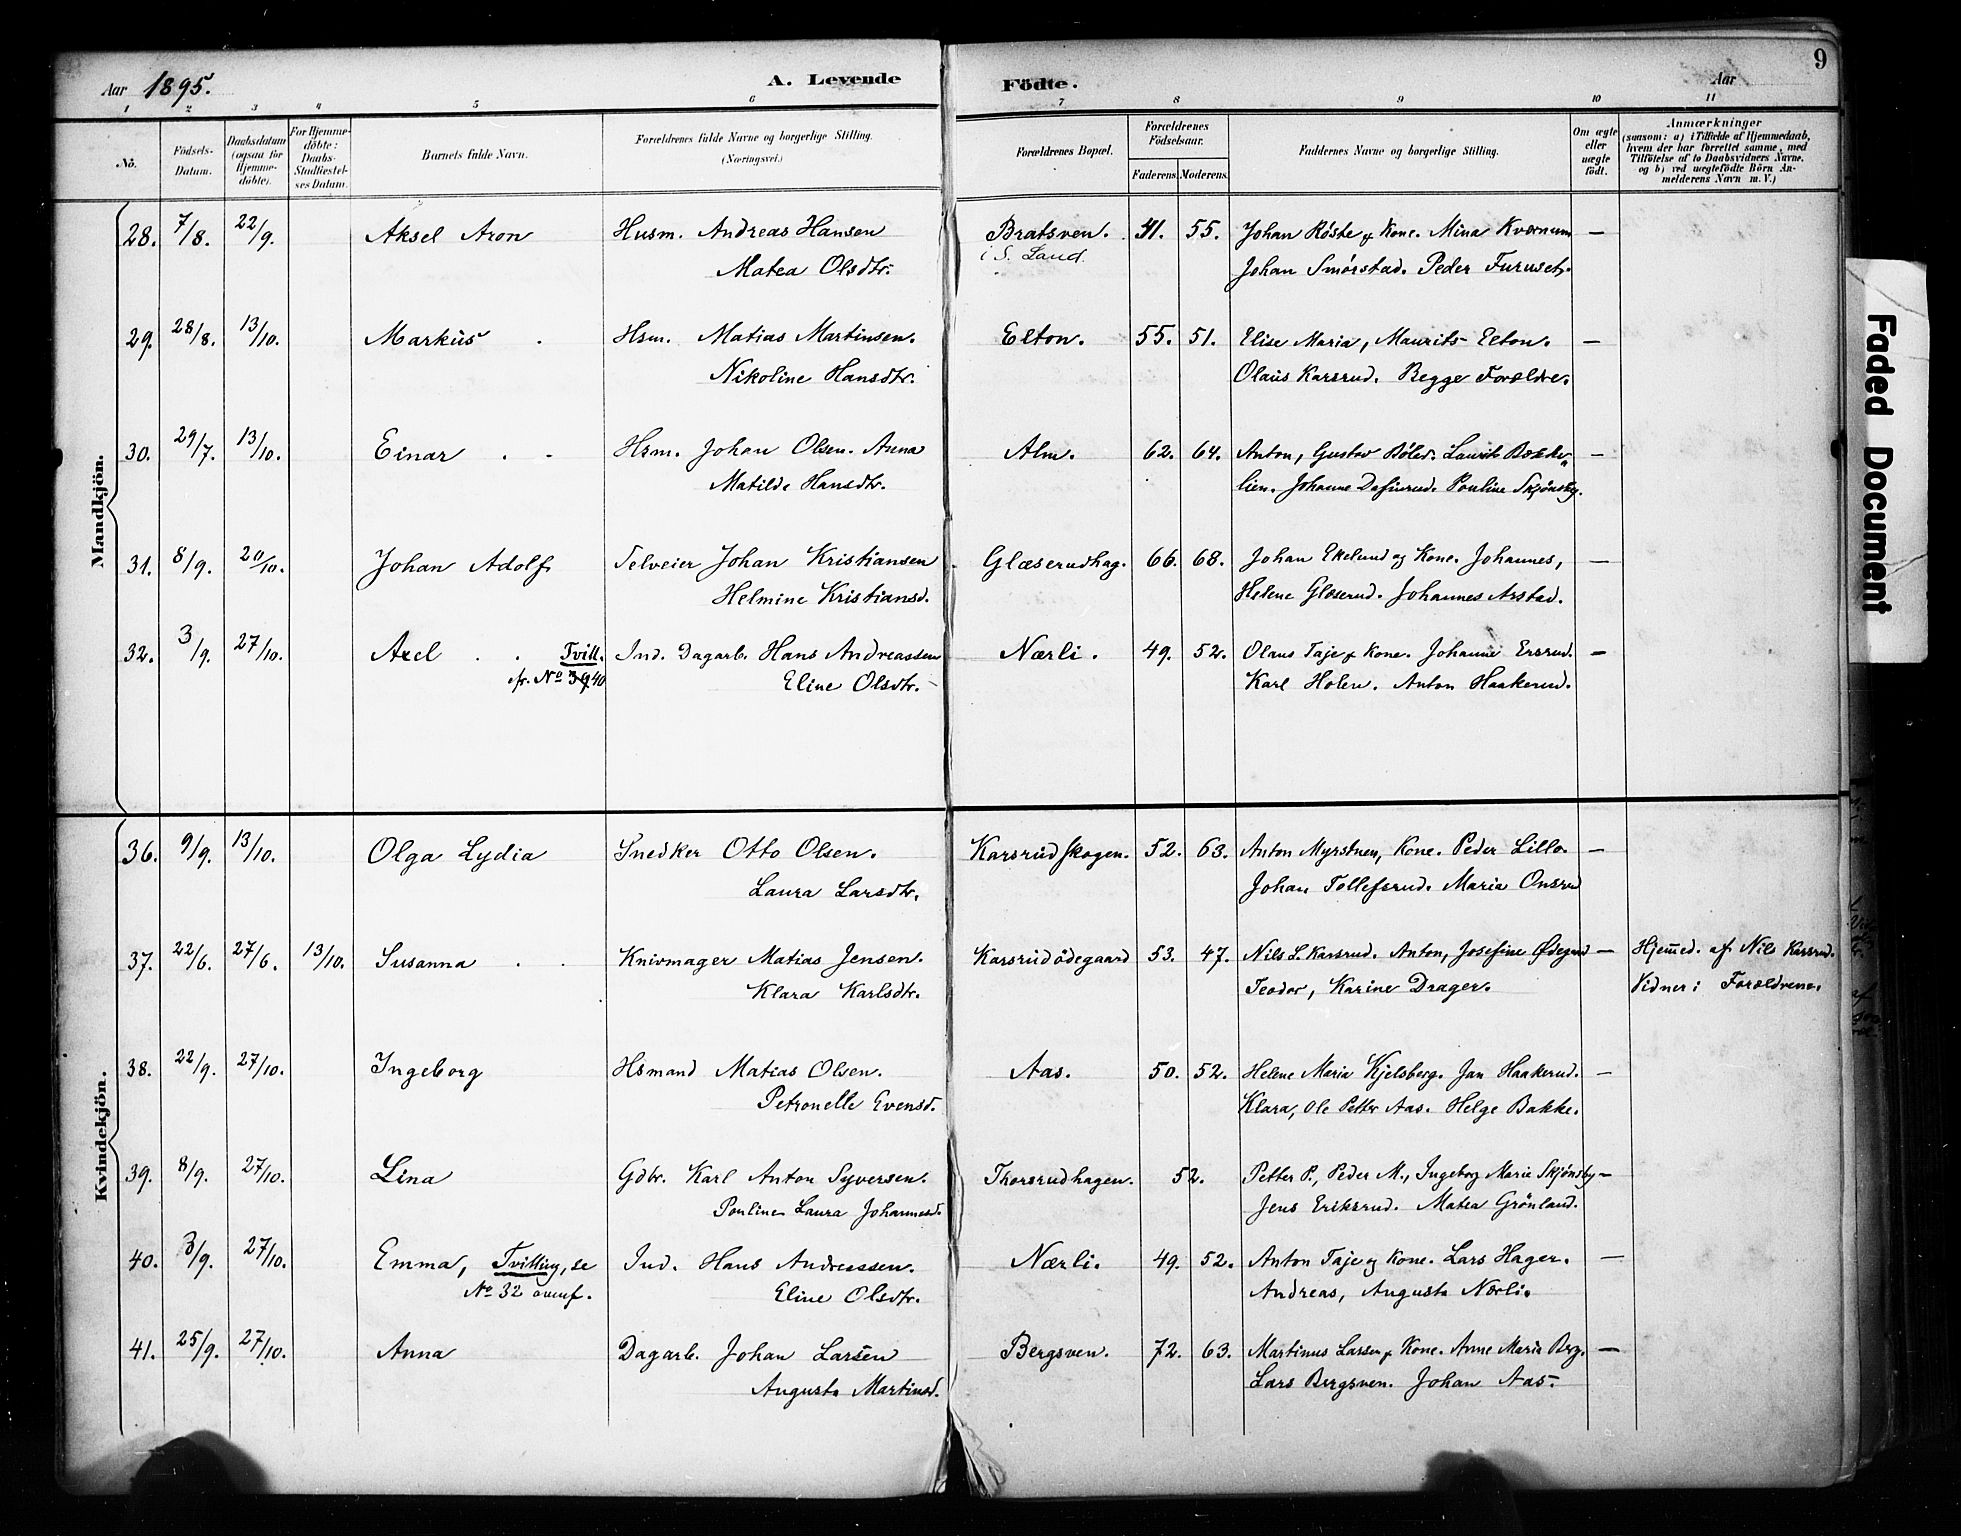 Aar 1895.
A. Levende
Födte.
Aar
9
1 2 3 4 5 6 7 8 9 10 11
No.
Födsels-Datum.
Daabsdatum (ogsaa for Hjemme-döbte).
For Hjemme-döbte: Daabs-Stadfæstel-ses Datum.
Barnets fulde Navn.
Forældrenes fulde Navne og borgerlige Stilling. (Næringsvei.)
Forældrenes Bopæl.
Forældrenes Födselsaar.
Faderens. Moderens.
Faddernes Navne og borgerlige Stilling.
Om ægte eller uægte födt.
Anmærkninger
(saasom: a) i Tilfælde af Hjemmedaab,
hvem der har forrettet samme, med
Tilföielse af to Daabsvidners Navne,
og b) ved uægtefödte Börn An-
melderens Navn m. V.)
Mandkjön.
28. 7/8. 22/9. Aksel Aron Husm. Andreas Hansen Bratsven. 41. 55. Johan Røste & Kone. Mina Kværnum —
Matea Olsdtr. i S. Land. Johan Smørstad. Peder Furuset.
29. 28/8. 13/10. Markus Hsm. Matias Martinsen. Elton. 55. 51. Elise Maria, Maurits Elton. —
Nikoline Hansdtr. Olaus Karsrud. Begge Forældre.
30. 29/7. 13/10. Einar Hsm. Johan Olsen. Anna Alm. 62. 64. Anton, Gustav Laurits —
Matilde Hansdtr. lien. Johanne Pouline Skjønsby.
31. 8/9. 20/10. Johan Adolf. Selveier Johan Kristiansen Glæserudhag. 66. 68. Johan Ekelund og Kone. Johannes, —
Helmine Kristiansd. Helene Glæserud. Johannes Arstad.
32. 3/9. 27/10. Axel Tvill. Ind. Dagarb. Hans Andreassen Nærli. 49. 52. Olaus Taje & Kone. Johanne Ersrud. —
cfr. No 39 40 Eline Olsdtr. Karl Holen. Anton Haakerud.
Kvindekjön.
36. 9/9. 13/10. Olga Lydia Snedker Otto Olsen. Karsrudskogen. 52. 63. Anton Myrstuen, Kone. Peder Lillo. —
Laura Larsdtr. Johan Tollefsrud. Maria Onsrud
37. 22/6. 27/6. 13/10. Susanna Knivmager Matias Jensen. Karsrudødegaard 53. 47. Nils L. Karsrud. Anton, Josefine Ødegard — Hjemmed. af Nils Karsrud.
Klara Karlsdtr. Teodor, Karine Drager. Vidner: Forældrene.
38. 22/9. 27/10. Ingeborg Hsmand Matias Olsen. Aas. 50. 52. Helene Maria Kjelsberg. Jan Haakerud. —
Petronelle Evensd. Klara, Ole Petter Aas. Helge Bakke.
39. 8/9. 27/10. Lina Gdbr. Karl Anton Syversen. Thorsrudhagen. 52. Petter P., Peder M., Ingeborg Marie Skjønsby —
Pouline Laura Johannesd. Jens Eriksrud. Matea Grönland.
40. 3/9. 27/10. Emma, Tvilling, se Ind. Hans Andreassen. Nærli. 49. 52. Anton Taje og Kone. Lars Hager. —
No 32 ovenf. Eline Olsdtr. Andreas, Augusta Nærli.
41. 25/9. 27/10. Anna Dagarb. Johan Larsen Bergsven. 72. 63. Martinus Larsen & Kone. Anne Marie Berg. —
Augusta Martinsd. Lars Bergsven. Johan Aas.
Faded Document